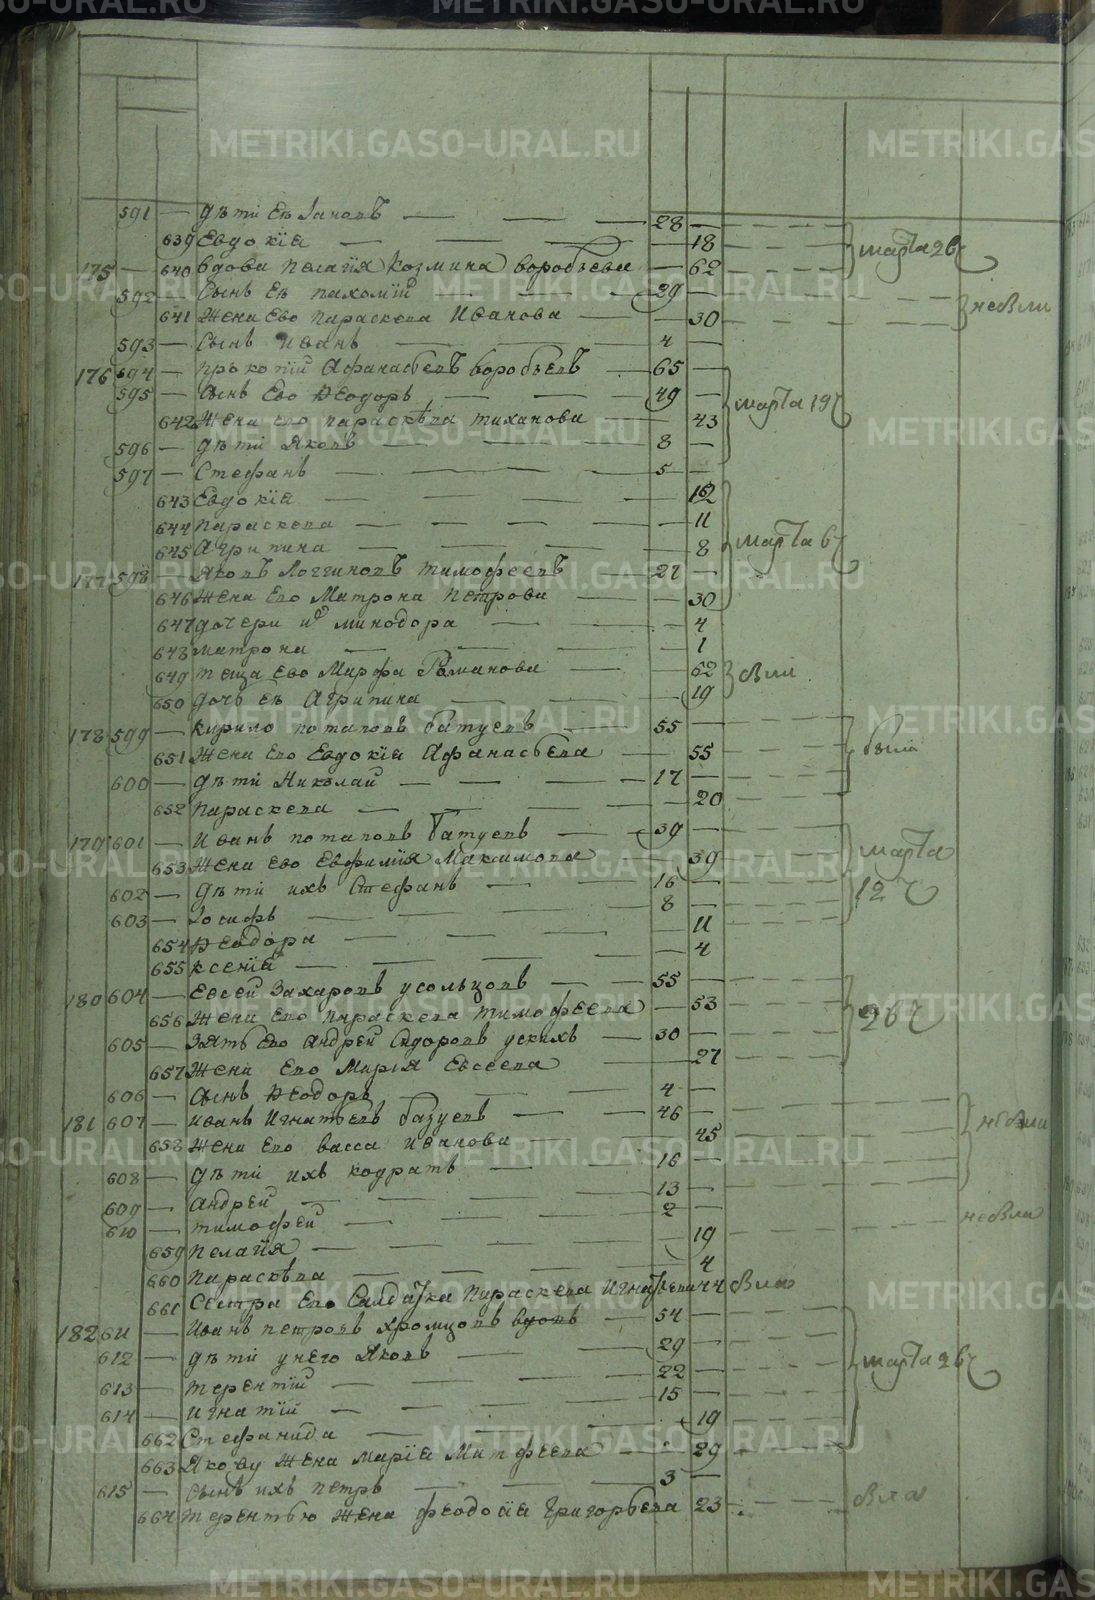 591 — дѣти Еѣ Іаковъ — 28 —
639 Евдокїа — 18 марта 26
175 — 640 вдова пелагїя Козмина воробьева — 62
592 — Сынъ Еѣ пахомїй — 29 — небыли
641 Жена Ево параскева Иванова — 30
593 — Сынъ Иванъ — 4 —
176 594 — прокопїй Афанасьевъ воробьевъ — 65 —
595 — Сынъ Ево Ѳеодоръ — 49 — марта 19
642 Жена ево параскѣва тиханова — 43
596 — дѣти Яковъ — 8 —
597 — Стефанъ — 5 —
643 Евдокїа — 12
644 параскева — 11
645 Агрипина — 8 марта 6
177 598 — Яковъ Логгиновъ тимофеевъ — 27 —
646 Жена Ево Матрона петрова — 30
647 дочери минодора — 4
648 матрона — 1
649 теща Ево Марфа Романова — 62 были
650 дочь еѣ Агрипина — 19
178 599 — Кирило потаповъ батуевъ — 55 —
651 Жена Ево Евдокїа Афанасьева — 55 были
600 — дѣти Николай — 17 —
652 параскева — 20
179 601 — Иванъ потаповъ батуевъ — 39 —
653 Жена Ево Евфимїя Максимова — 39 марта
602 — дѣти ихъ Стефанъ — 16 — 12
603 — Іосифъ — 8 —
654 Ѳеодора — 11
655 ксенїа — 4
180 604 — Евсей Захаровъ усольцовъ — 55 —
656 Жена Ево параскева тимофеева — 53 26
605 — Зять Ево андрей Сидоровъ ускихъ — 30 —
657 Жена Ево Марїя Евсеева — 27
606 — Сынъ Ѳеодоръ — 4 —
181 607 — иванъ Игнатьевъ базуевъ — 46 — небыли
658 Жена Ево васса иванова — 45
608 — дѣти ихъ кодратъ — 16 —
609 — андрей — 13 —
610 — тимофей — 2 — небыла
659 пелагїя — 19
660 параскѣва — 4
661 Сестра Ево Салдатка параскева Игнатьева 44 была
182 611 — Иванъ петровъ хромцовъ вдовъ — 54 —
612 — дѣти у него Яковъ — 29 —
613 — терентїй — 22 — марта 26
614 — игнатїй — 15 —
662 Стефанида — 19
663 Якову Жена марїа Матфеева — 29
615 — Сынъ ихъ петръ — 3 —
664 терентью Жена феодосїа григорьева — 23 была
METRIKI.GASO-URAL.RU